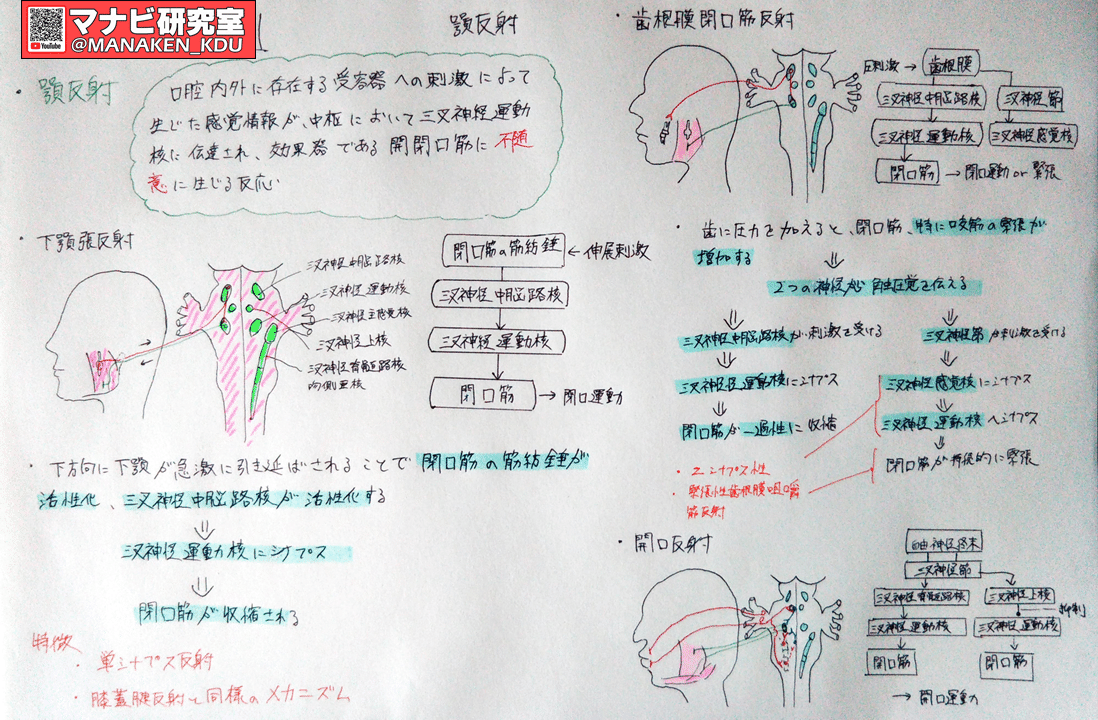 マナビ研究室
YouTube
@MANAKEN_KDU
顎反射
・顎反射
口腔内外に存在する受容器への刺激によって
生じた感覚情報が、中枢において三叉神経運動
核に伝達され、効果器である開閉口筋に不随
意に生じる反応
・下顎張反射
三叉神経中脳路核
三叉神経運動核
三叉神経主感覚核
三叉神経上核
三叉神経脊髄路核
吻側亜核
閉口筋の筋紡錘 ← 伸展刺激
三叉神経中脳路核
三叉神経運動核
閉口筋 → 閉口運動
・下方向に下顎が急激に引き延ばされることで閉口筋の筋紡錘が
活性化、三叉神経中脳路核が活性化する
⇓
三叉神経運動核にシナプス
⇓
閉口筋が収縮される
特徴
・単シナプス反射
・膝蓋腱反射と同様のメカニズム
・歯根膜閉口筋反射
圧刺激 → 歯根膜
三叉神経中脳路核
三叉神経節
三叉神経運動核
三叉神経感覚核
閉口筋 → 閉口運動 or 緊張
・歯に圧力を加えると、閉口筋、特に咬筋の緊張が
増加する
⇓
2つの神経が
を伝える
⇓
三叉神経中脳路核が刺激を受ける
⇓
三叉神経運動核にシナプス
⇓
閉口筋が一過性に収縮
⇓
三叉神経節が刺激を受ける
⇓
三叉神経感覚核にシナプス
⇓
三叉神経運動核へシナプス
⇓
閉口筋が持続的に緊張
・2シナプス性
・緊張性歯根膜咀嚼
筋反射
・開口反射
自由神経終末
三叉神経節
三叉神経脊髄路核
三叉神経上核
抑制
三叉神経運動核
三叉神経運動核
開口筋
閉口筋
→ 開口運動